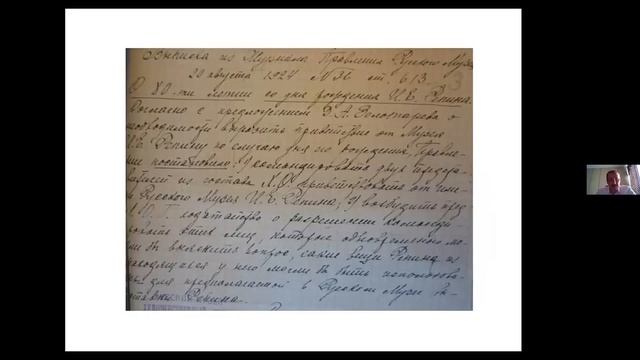 Выписка из Журнала Правления Русского Музея
20 августа 1924 № 36 ст. 613.
О 80-ти летии со дня рождения И.Е. Репина.
Согласно с предложением Д.А. Золотарева о
необходимости выразить приветствие от Музея
И.Е. Репину по случаю дня его рождения, Правле-
ние постановило: 1) командировать двух предста-
вителей из состава Х.О. приветствовать от име-
ни Русского Музея И.Е. Репина; 2) возбудить пред
ходатайство о разрешении команди-
ровать этих лиц, которые одновременно мог-
ли бы выяснить вопрос, какие вещи Репина из
находящихся у него могли бы быть использова-
ны для предполагаемой в Русском Музее вы-
ставки Репина.